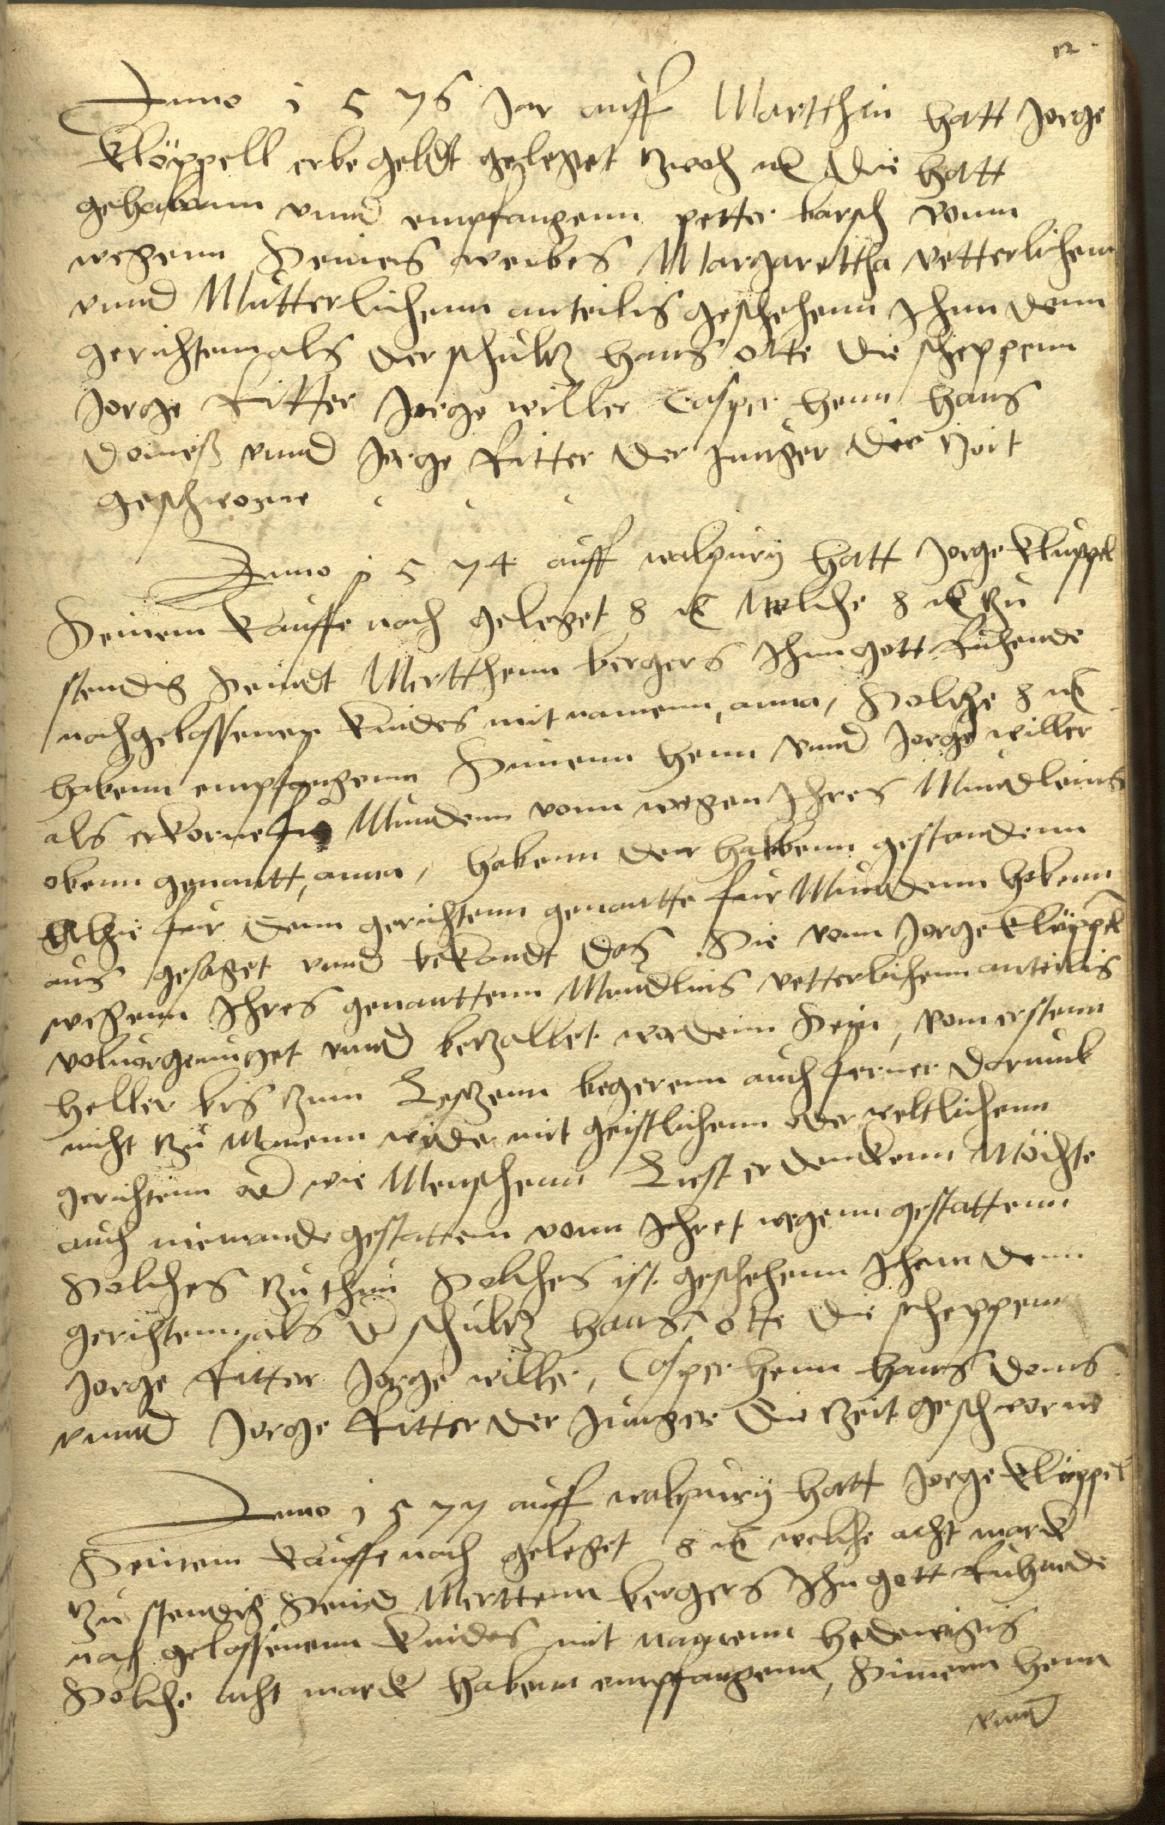 12.
Anno 1576 Jar auff Martthin hatt Jorge
Klöppell erbe geldt geleget zwey mk die hatt
gehabenn vnnd empfangenn petter barsch vonn
wegenn Seines weibes Margarettha vetterlichenn
vnnd Mutterlichenn anteilis geschehenn Ihnn denn
gerichtenn als der schultz hans otte die scheppenn
Jorge Ritter Jorge willer Casper henn hans
vnnd Jorge Ritter der Junger die Zeit
geschworne
Anno 1574 auff walpurij hatt Jorge Kluppel
Seinem kauffe nach geleget 8 mk Welche 8 mk zu
stendig Seindt Mertthenn bergers Ihnn gott Ruhende
nachgelossenen kindes mit namenn, anna, Solche 8 mk
habenn empfangenn Simenn henn vnnd Jorge willer
als erkorne fur Mundenn vonn wegen Ihres Mundleins
obenn genantt, anna, habenn der habbenn gestandenn
Alhie fur denn gerichtenn genantte fur Mundenn habenn
aus gesaget vnnd bekandt das Sie vonn Jorge Klüppel
wegenn Ihres genanttenn Mundlins vetterlichenn anteilis
volnorgenuget vnnd bezallet wordenn Sein, vom erstenn
heller bis zum Letzenn begerenn auch ferner dorumb
nicht zu Manenn wider mit geistlichenn oder weltlichenn
gerichtenn oder wie Menschenn List erdenckenn Möchte
auch niemande gestattenn vonn Ihret wegenn gestattenn
Solches zu thun Solches ist geschehenn Ihnn denn
gerichtenn als der schultz hans otte die scheppenn
Jorge Ritter Jorge willer, Casper henn hans doms
vnnd Jorge Ritter der Junger die Zeit geschworne
Anno 1577 auff walpurij hatt Jorge Klüppel
Seinem kauffe nach geleget 8 mk welche acht marck
zu stendig Seind Merttenn bergers Ihn gott Ruhende
nach gelossenenn kindes mit namenn hedewigis
Solche acht marck habenn empfangenn, Simenn henn
vnnd